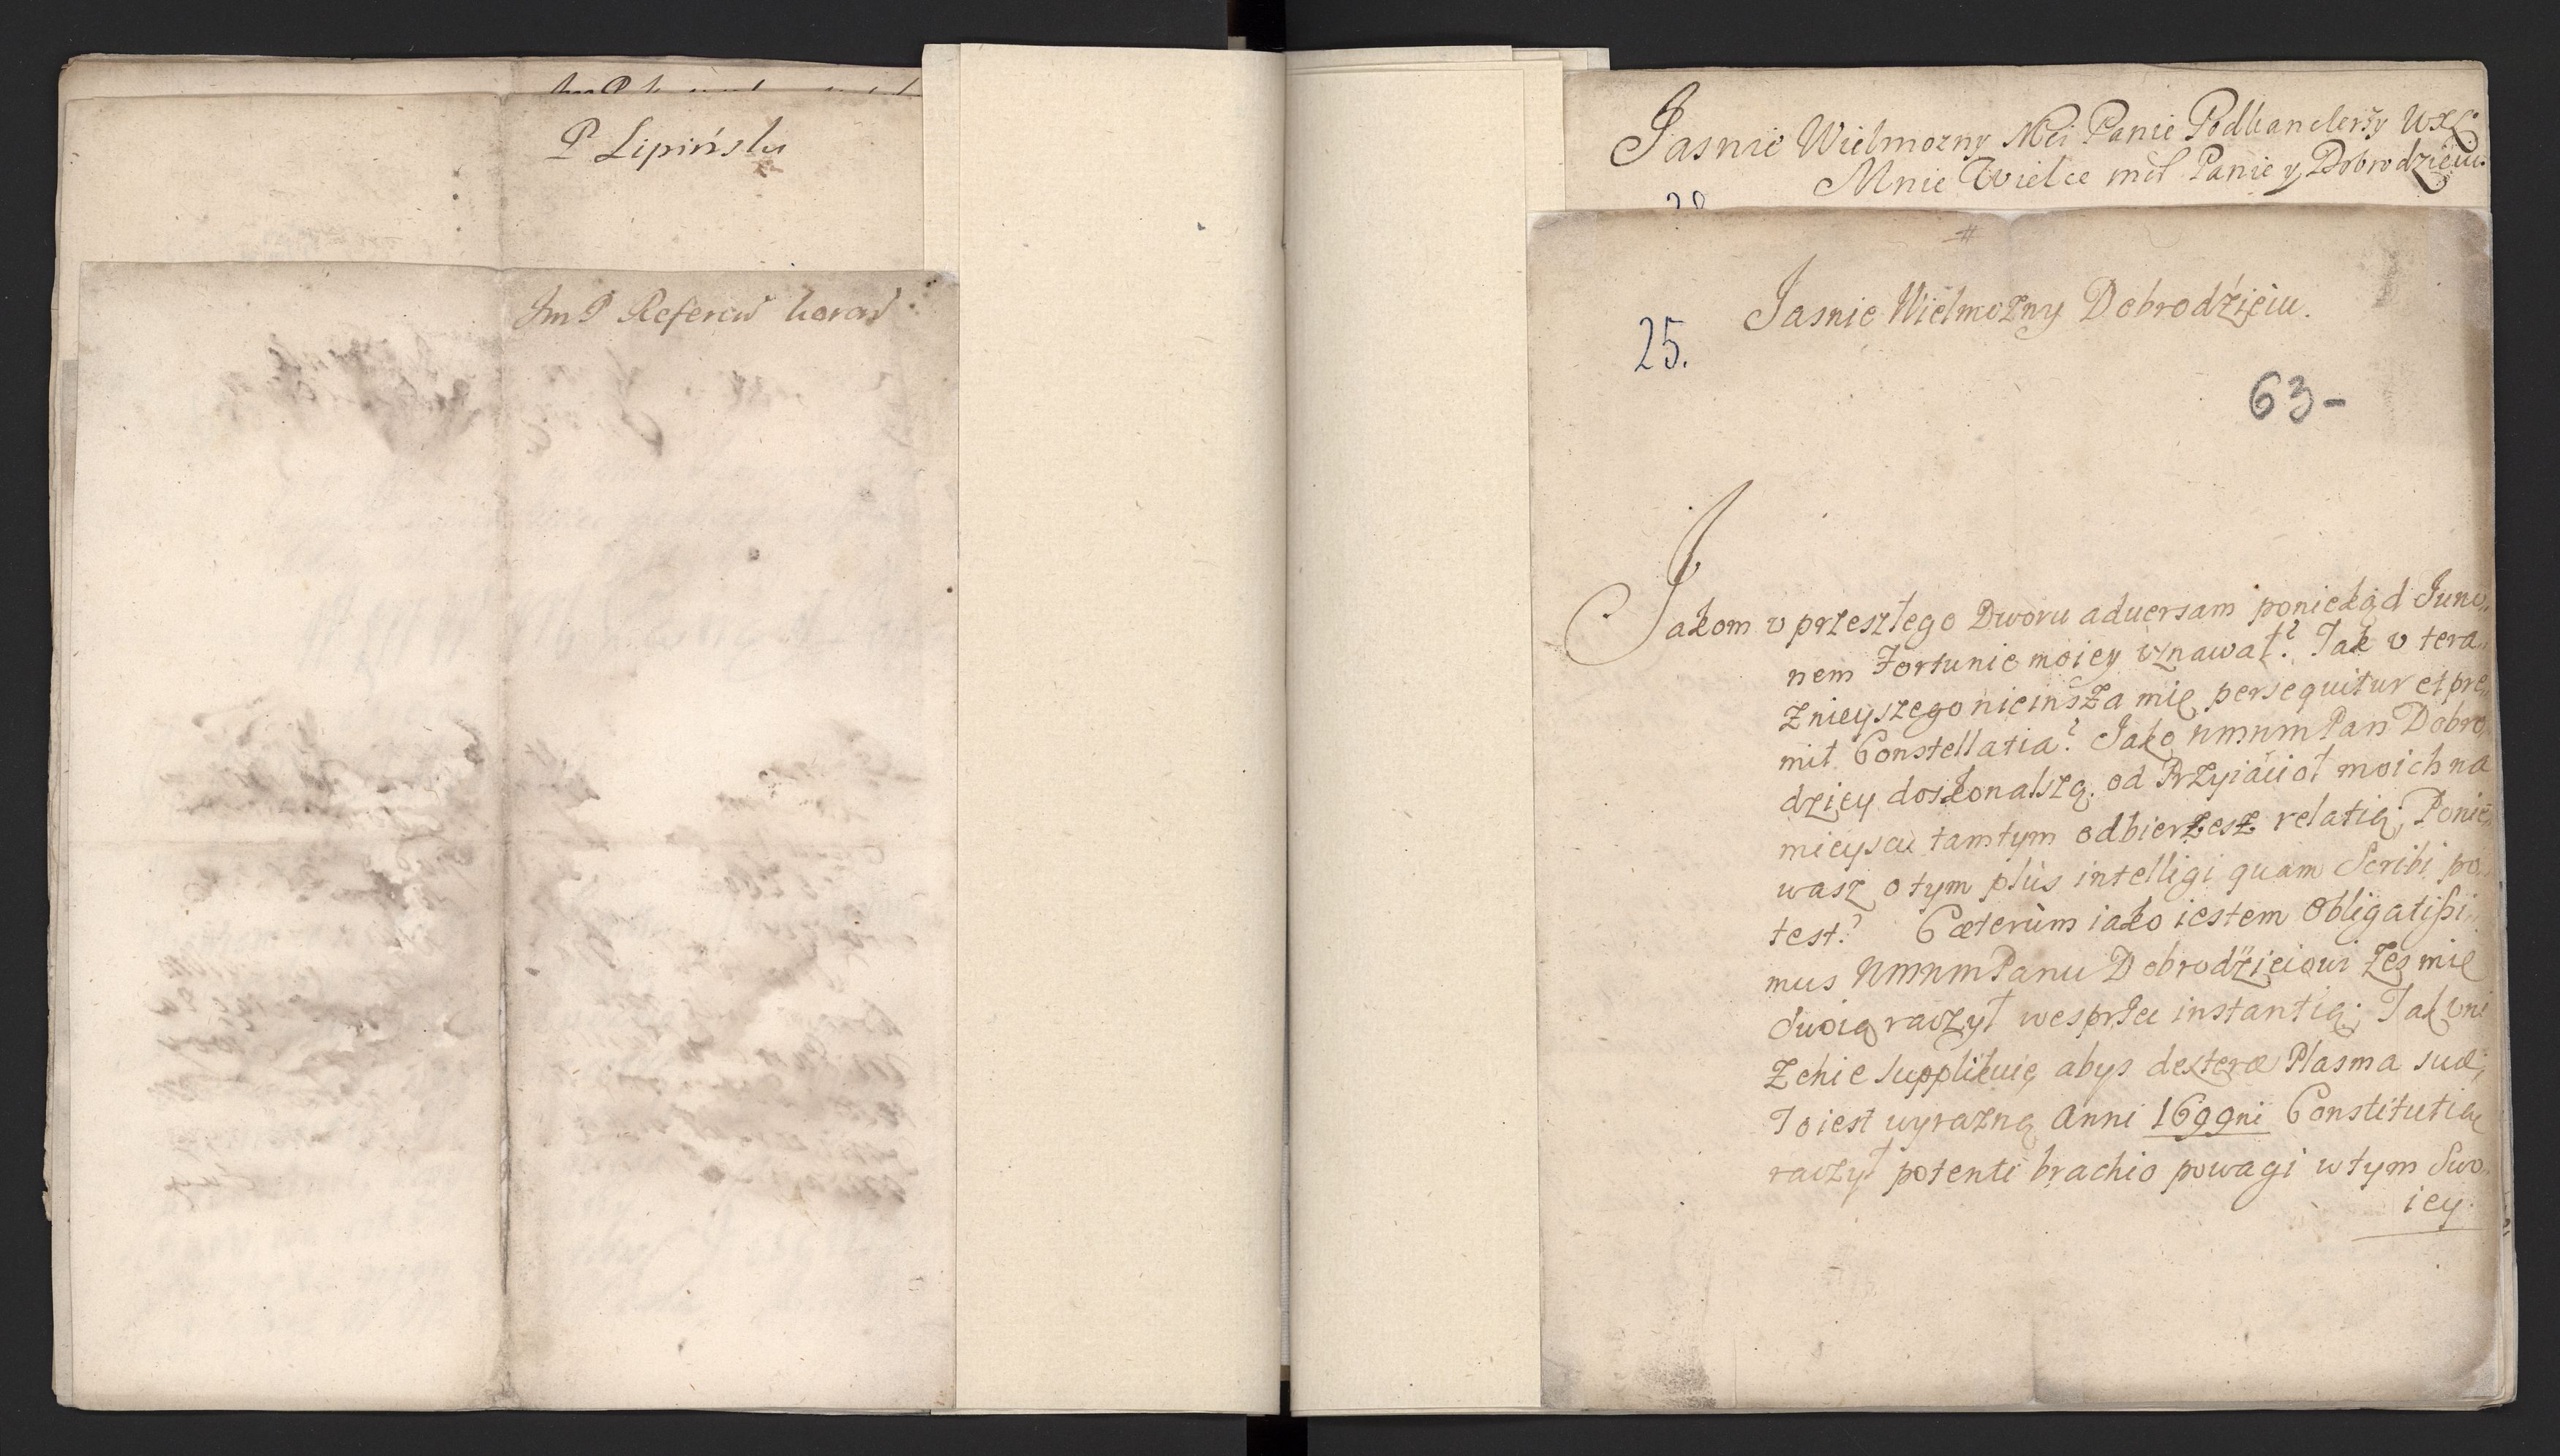 P Lipińsky
Jm P Referend koron
Jasnie Wielmozny Mći Panie Podkanclerzy WXL
Mnie Wielce mćł Panie y Dobrodzieiu
25.
Jasnie Wielmozny Dobrodźieiu.
63-
Jakom v przeszłego Dworu aduersam poniekąd Juno„
nem Fortunie moiey vznawał? Tak v tera„
znieyszego nieinsza mię persequitur et pre„
mit Constellatia? Jako WMWM Pan Dobro„
dziey doskonalszą od Przyiaćioł moich na
mieyscu tamtym odbierzesz relatią; Ponie„
wasz o tym plùs intelligi quam Scribi po„
test? Cæterùm iako iestem Obligatißi„
mus WMWM Panu Dobrodźieiowi żeś mię
Swoią raczył wesprzec instantią; Tak vni„
żenie supplikuię abys dexteræ Plasma suæ;
To iest wyrazną Anni 1699ni Constitutią
raczył potenti brachio powagi w tym Swo„
iey.